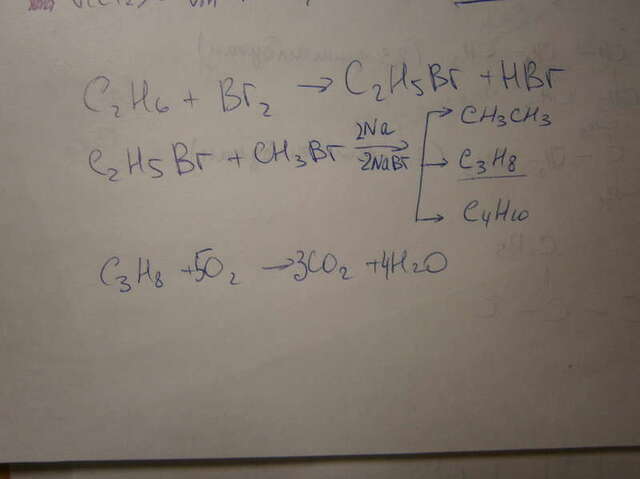 C₂H₆ + Br₂ → C₂H₅Br + HBr
C₂H₅Br + CH₃Br 2Na → CH₃CH₃
-2NaBr → C₃H₈
→ C₄H₁₀
C₃H₈ + 5O₂ → 3CO₂ + 4H₂O